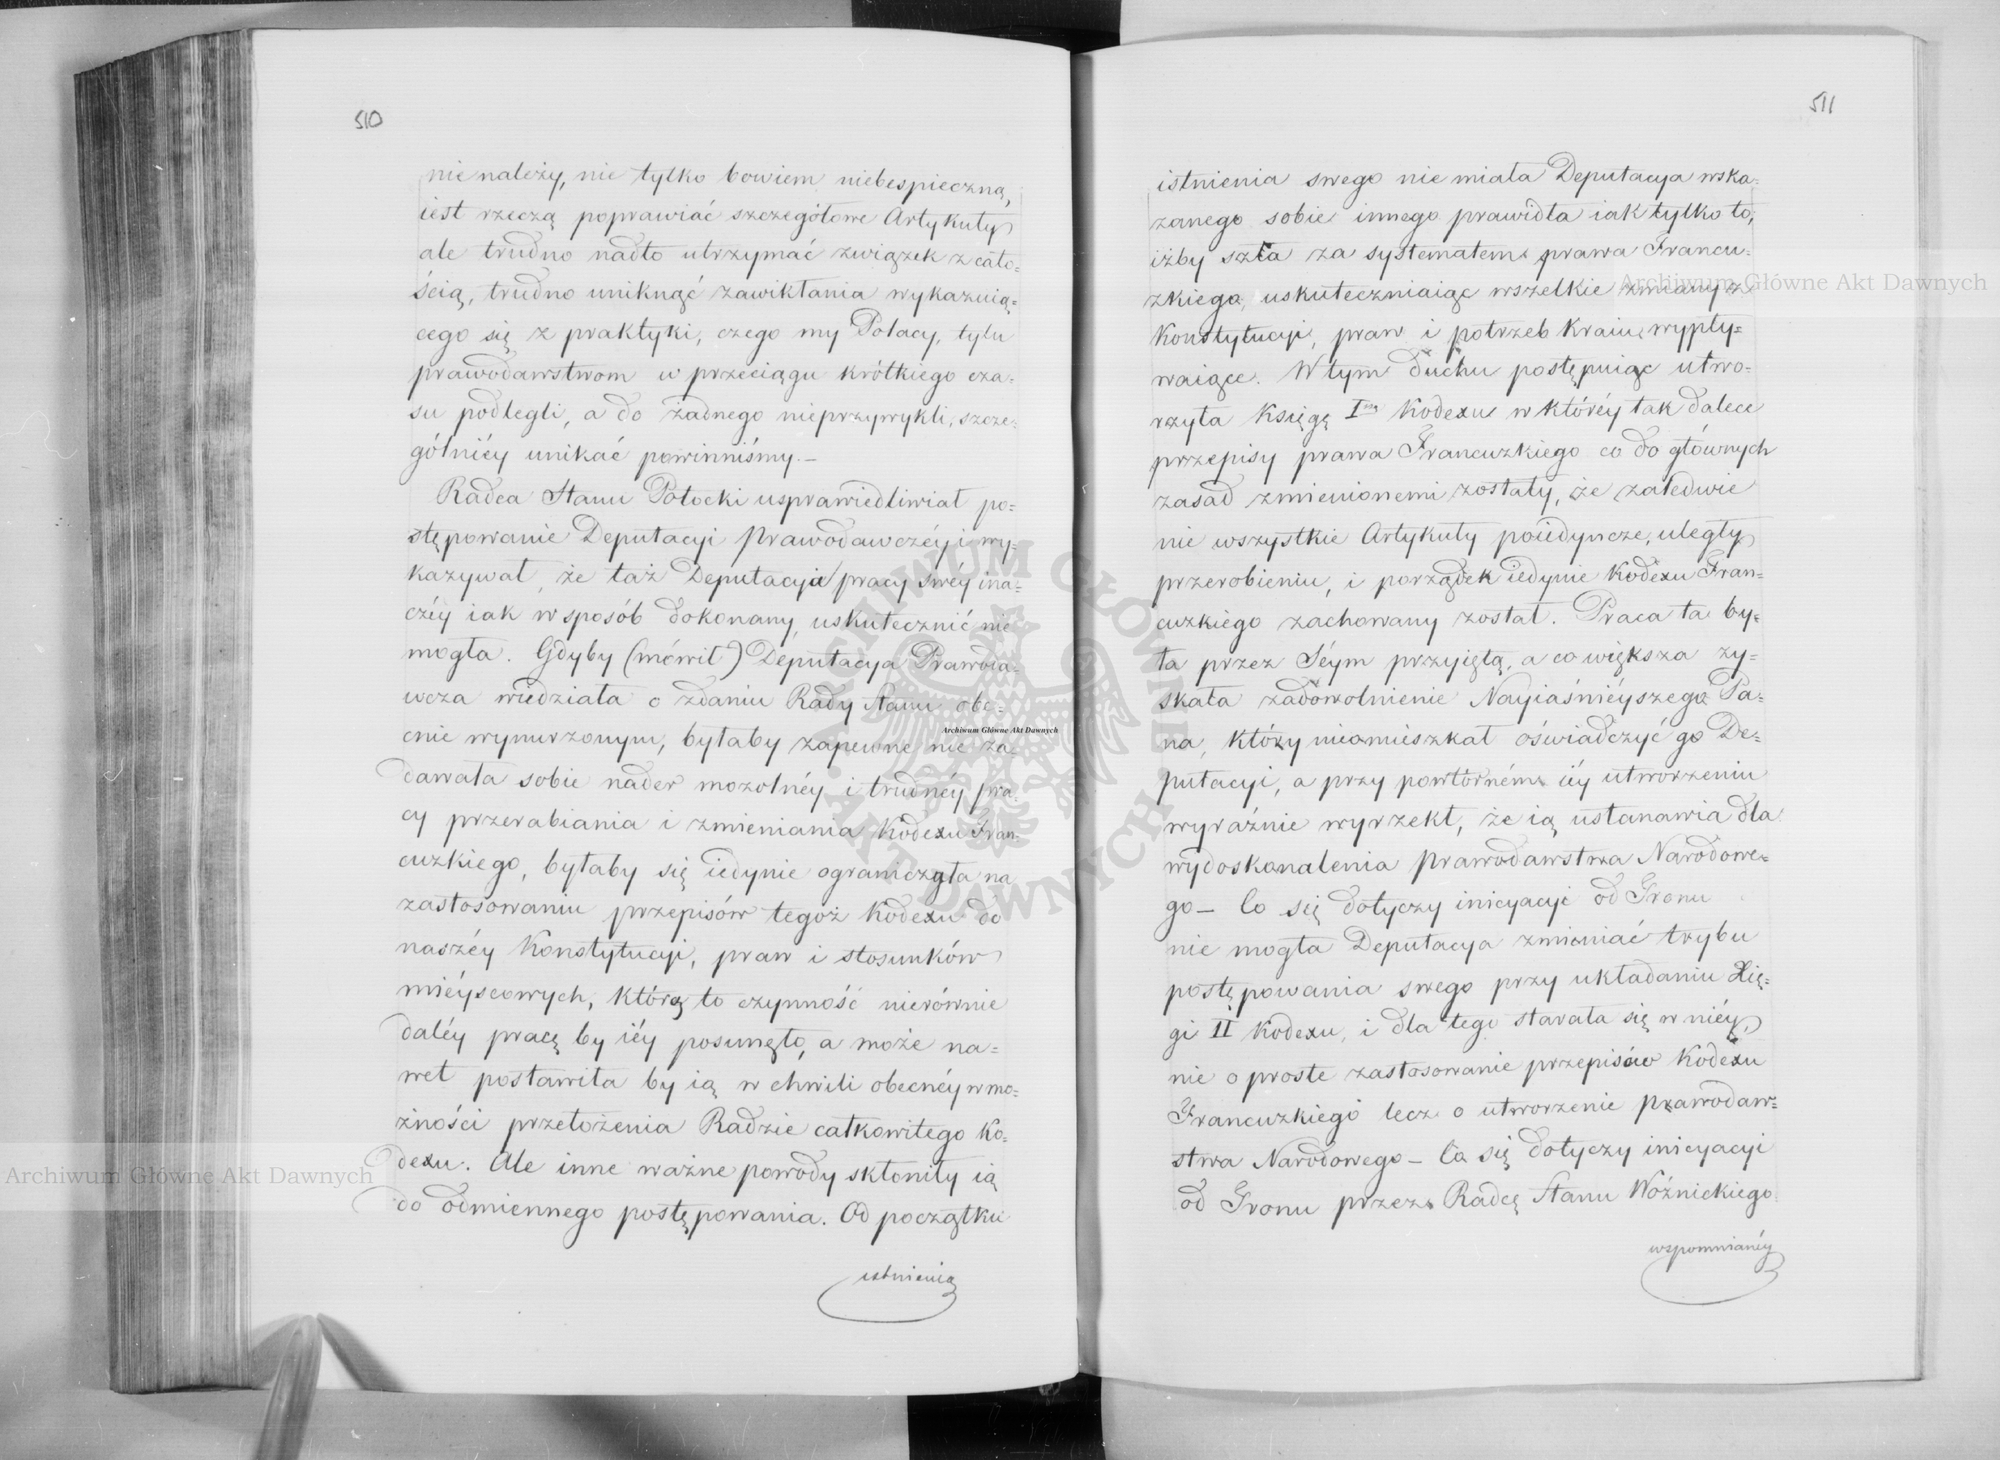 510
nie należy, nie tylko bowiem niebespieczną,
iest rzeczą poprawiać szczegółowe Artykuły
ale trudno nadto utrzymać związek z cało-
ścią, trudno uniknąć zawikłania wykazuią-
cego się z praktyki, czego my Polacy, tylu
prawodawstwom w przeciągu krótkiego cza-
su podlegli, a do żadnego nieprzywykli, szcze-
gólniéy unikać powinniśmy.—
Radca Stanu Potocki usprawiedliwiał po-
stępowanie Deputacyi Prawodawczéy i wy-
kazywał, że taż Deputacyia pracy swéy ina-
czéy iak w sposób dokonany, uskutecznić nie
mogła. Gdyby (mówił) Deputacya Prawoda-
wcza wiedziała o zdaniu Rady Stanu obe-
cnie wynurzonym, byłaby zapewne nie za-
dawała sobie nader mozolnéy i trudnéy pra-
cy przerabiania i zmieniania Kodexu Fran-
cuzkiego, byłaby się iedynie ograniczyła na
zastosowaniu przepisów tegoż Kodexu do
naszéy Konstytucyi, praw i stosunków
miéyscowych, którą to czynność nierównie
daléy pracę by iéy posunęło, a może na-
wet postawiła by ią w chwili obecnéy w mo-
żności przełożenia Radzie całkowitego Ko-
dexu. Ale inne ważne powody skłoniły ią
do odmiennego postępowania. Od początku
istnienia
511
istnienia swego nie miała Deputacya wska-
zanego sobie innego prawidła iak tylko to,
iżby szła za systematem prawa Francu-
zkiego, uskuteczniaiąc wszelkie zmiany z
Konstytucyi, praw i potrzeb Kraiu wypły-
waiące. W tym duchu postępuiąc utwo-
rzyła Księgę Iszą Kodexu w któréy tak dalece
przepisy prawa Francuzkiego co do głównych
zasad zmienionemi zostały, że zaledwie
nie wszystkie Artykuły poiedyncze, uległy
przerobieniu, i porządek iedynie Kodexu Fran-
cuzkiego zachowany został. Praca ta by-
ła przez Séym przyiętą, a co większa zy-
skała zadowolnienie Nayiaśniéyszego Pa-
na, który nieomieszkał oświadczyć go De-
putacyi, a przy powtórném iéy utworzeniu
wyraźnie wyrzekł, że ią ustanawia dla
wydoskonalenia prawodawstwa Narodowe-
go — Co się dotyczy inicyacyi od Tronu
nie mogła Deputacya zmieniać trybu
postępowania swego przy układaniu Xię-
gi II Kodexu, i dla tego starała się w niéy,
nie o proste zastosowanie przepisów Kodexu
Francuzkiego lecz o utworzenie prawodaw-
stwa Narodowego — Co się dotyczy inicyacyi
od Tronu przez Radcę Stanu Woźnickiego
wspomnianéy
ARCHIWUM GŁÓWNE AKT DAWNYCH
Archiwum Główne Akt Dawnych
Archiwum Główne Akt Dawnych
Archiwum Główne Akt Dawnych